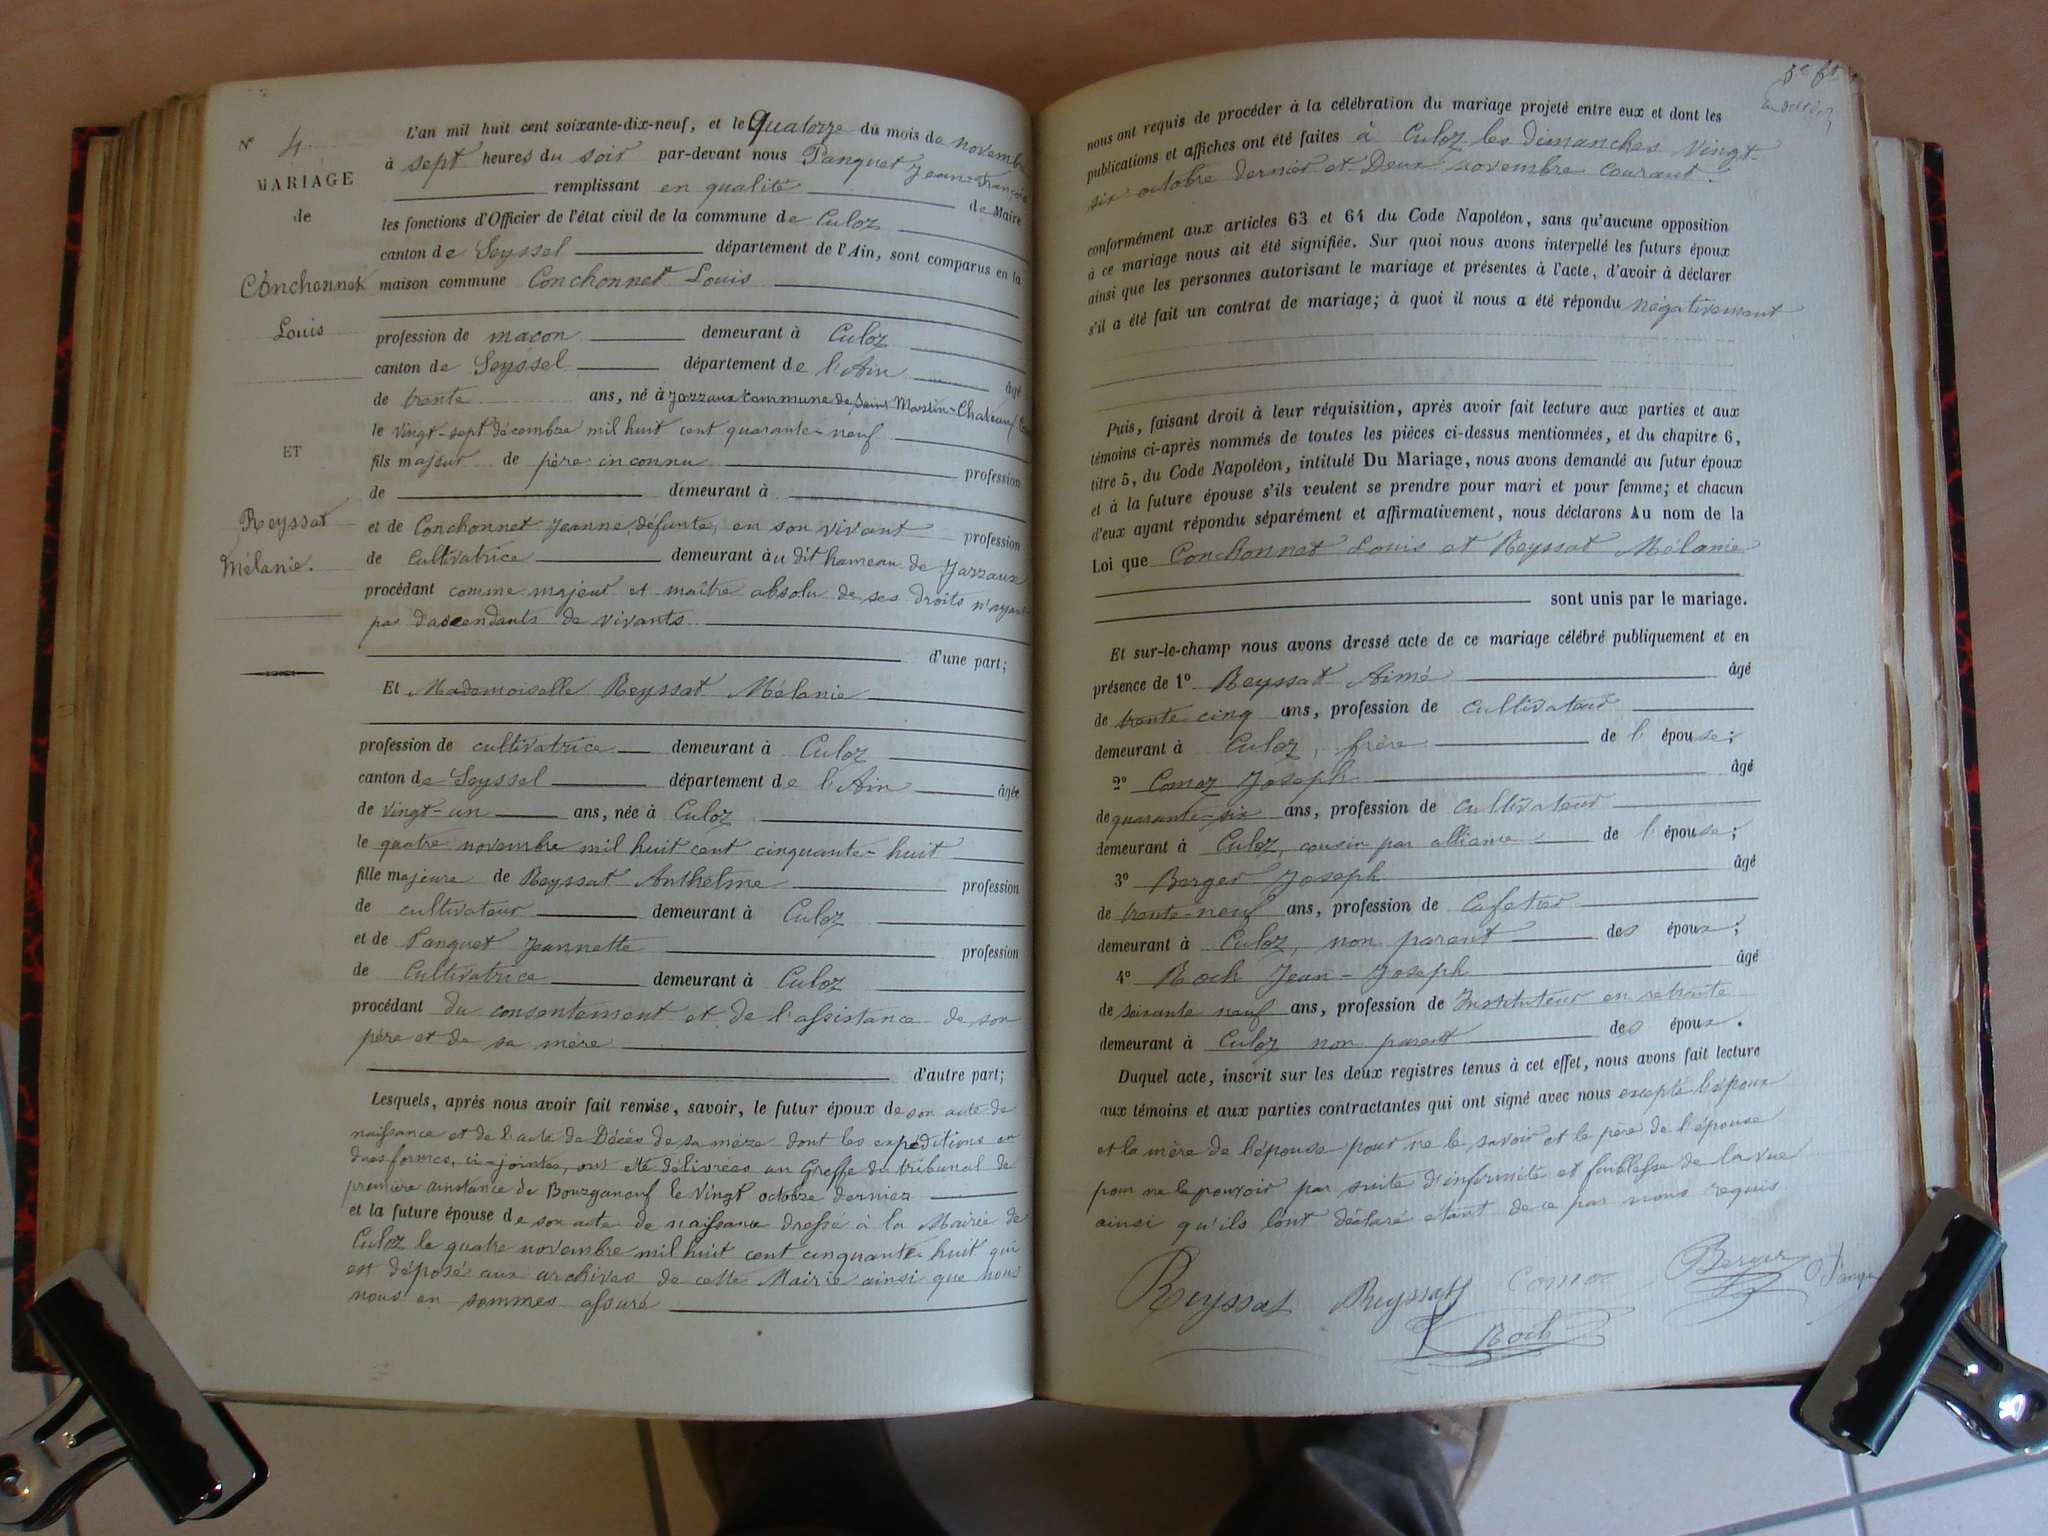 N° 4
MARIAGE
de
Conchonnet
Louis
ET
Reyssat
Mélanie.
L'an mil huit cent soixante-dix-neuf, et le Quatorze du mois de novembre
à sept heures du soir par-devant nous Panquet Jean-François
remplissant en qualité de Maire
les fonctions d'Officier de l'état civil de la commune de Culoz
canton de Seyssel département de l'Ain, sont comparus en la
maison commune Conchonnet Louis
profession de maçon demeurant à Culoz
canton de Seyssel département de l'Ain âgé
de trente ans, né à Jazzaux commune de Saint Martin-Château
le vingt-sept décembre mil huit cent quarante-neuf
fils majeur de père inconnu profession
de demeurant à
et de Conchonnet Jeanne, défunte, en son vivant profession
de cultivatrice demeurant au dit hameau de Jazzaux
procédant comme majeur et maître absolu de ses droits n'ayant
pas d'ascendants de vivants
d'une part;
Et Mademoiselle Reyssat Mélanie
profession de cultivatrice demeurant à Culoz
canton de Seyssel département de l'Ain âgée
de vingt-un ans, née à Culoz
le quatre novembre mil huit cent cinquante-huit
fille majeure de Reyssat Anthelme profession
de cultivateur demeurant à Culoz
et de Panquet Jeannette profession
de Cultivatrice demeurant à Culoz
procédant du consentement et de l'assistance de son
père et de sa mère
d'autre part;
Lesquels, après nous avoir fait remise, savoir, le futur époux de son acte de
naissance et de l'acte de Décès de sa mère dont les expéditions en
dues formes, ci-jointes, ont été délivrées au Greffe du tribunal de
première instance de Bourganeuf le vingt octobre dernier
et la future épouse de son acte de naissance dressé à la Mairie de
Culoz le quatre novembre mil huit cent cinquante-huit qui
est déposé aux archives de cette Mairie ainsi que nous
nous en sommes assuré
nous ont requis de procéder à la célébration du mariage projeté entre eux et dont les
publications et affiches ont été faites à Culoz les dimanches vingt-
six octobre dernier et Deux novembre courant.
conformément aux articles 63 et 64 du Code Napoléon, sans qu'aucune opposition
à ce mariage nous ait été signifiée. Sur quoi nous avons interpellé les futurs époux
ainsi que les personnes autorisant le mariage et présentes à l'acte, d'avoir à déclarer
s'il a été fait un contrat de mariage; à quoi il nous a été répondu négativement
Puis, faisant droit à leur réquisition, après avoir fait lecture aux parties et aux
témoins ci-après nommés de toutes les pièces ci-dessus mentionnées, et du chapitre 6,
titre 5, du Code Napoléon, intitulé Du Mariage, nous avons demandé au futur époux
et à la future épouse s'ils veulent se prendre pour mari et pour femme; et chacun
d'eux ayant répondu séparément et affirmativement, nous déclarons Au nom de la
Loi que Conchonnet Louis et Reyssat Mélanie
sont unis par le mariage.
Et sur-le-champ nous avons dressé acte de ce mariage célébré publiquement et en
présence de 1° Reyssat Aimé âgé
de trente cinq ans, profession de cultivateur
demeurant à Culoz, frère de l'épouse;
2° Comoz Joseph âgé
de quarante-six ans, profession de cultivateur
demeurant à Culoz, cousin par alliance de l'épouse;
3° Berger Joseph âgé
de trente-neuf ans, profession de Cafetier
demeurant à Culoz, non parent des époux;
4° Roch Jean-Joseph âgé
de soixante neuf ans, profession de Instituteur en retraite
demeurant à Culoz non parent des époux.
Duquel acte, inscrit sur les deux registres tenus à cet effet, nous avons fait lecture
aux témoins et aux parties contractantes qui ont signé avec nous excepté l'époux
et la mère de l'épouse pour ne le savoir et le père de l'épouse
pour ne le pouvoir par suite d'infirmité et faiblesse de la vue
ainsi qu'ils l'ont déclaré étant de ce par nous requis.
Reyssat Reyssat Comoz Berger
Roch